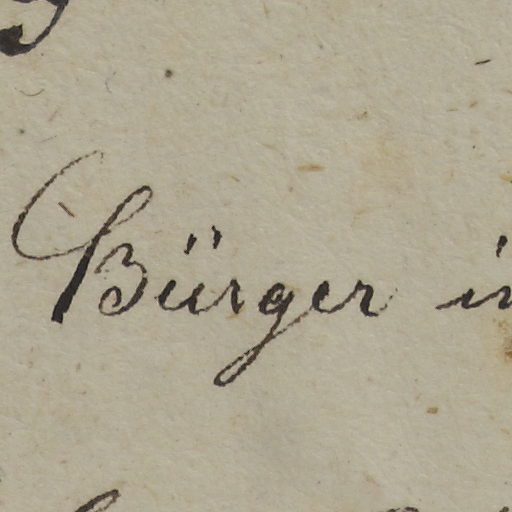 Bürger